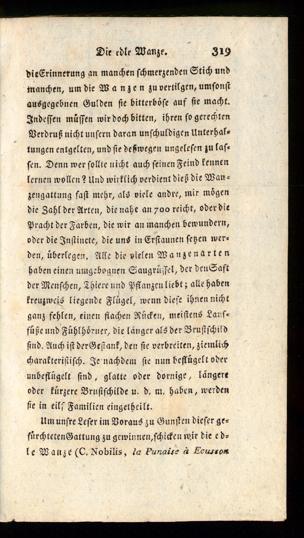 Die edle Wanze. 319
die Erinnerung an manchen schmerzenden Stich und
manchen, um die Wanzen zu vertilgen, umsonst
ausgegebnen Gulden sie bitterböse auf sie macht.
Indessen müssen wir doch bitten, ihren so gerechten
Verdruß nicht unsern daran unschuldigen Unterhal-
tungen entgelten, und sie deßwegen ungelesen zu las-
sen. Denn wer sollte nicht auch seinen Feind kennen
lernen wollen? Und wirklich verdient dieß die Wan-
zengattung fast mehr, als viele andre, wir mögen
die Zahl der Arten, die nahe an 700 reicht, oder die
Pracht der Farben, die wir an manchen bewundern,
oder die Instincte, die uns in Erstaunen setzen wer-
den, überlegen. Alle die vielen Wanzenarten
haben einen umgebognen Saugrüssel, der den Saft
der Menschen, Thiere und Pflanzen liebt; alle haben
kreuzweis liegende Flügel, wenn diese ihnen nicht
ganz fehlen, einen flachen Rücken, meistens Lauf-
füße und Fühlhörner, die länger als der Brustschild
sind. Auch ist der Gestank, den sie verbreiten, ziemlich
charakteristisch. Je nachdem sie nun beflügelt oder
unbeflügelt sind, glatte oder dornige, längere
oder kürzere Brustschilde u. d. m. haben, werden
sie in eilf Familien eingetheilt.
Um unsre Leser im Voraus zu Gunsten dieser ge-
fürchteten Gattung zu gewinnen, schicken wir die ed-
le Wanze (C. Nobilis, la Punaise à Ecusson